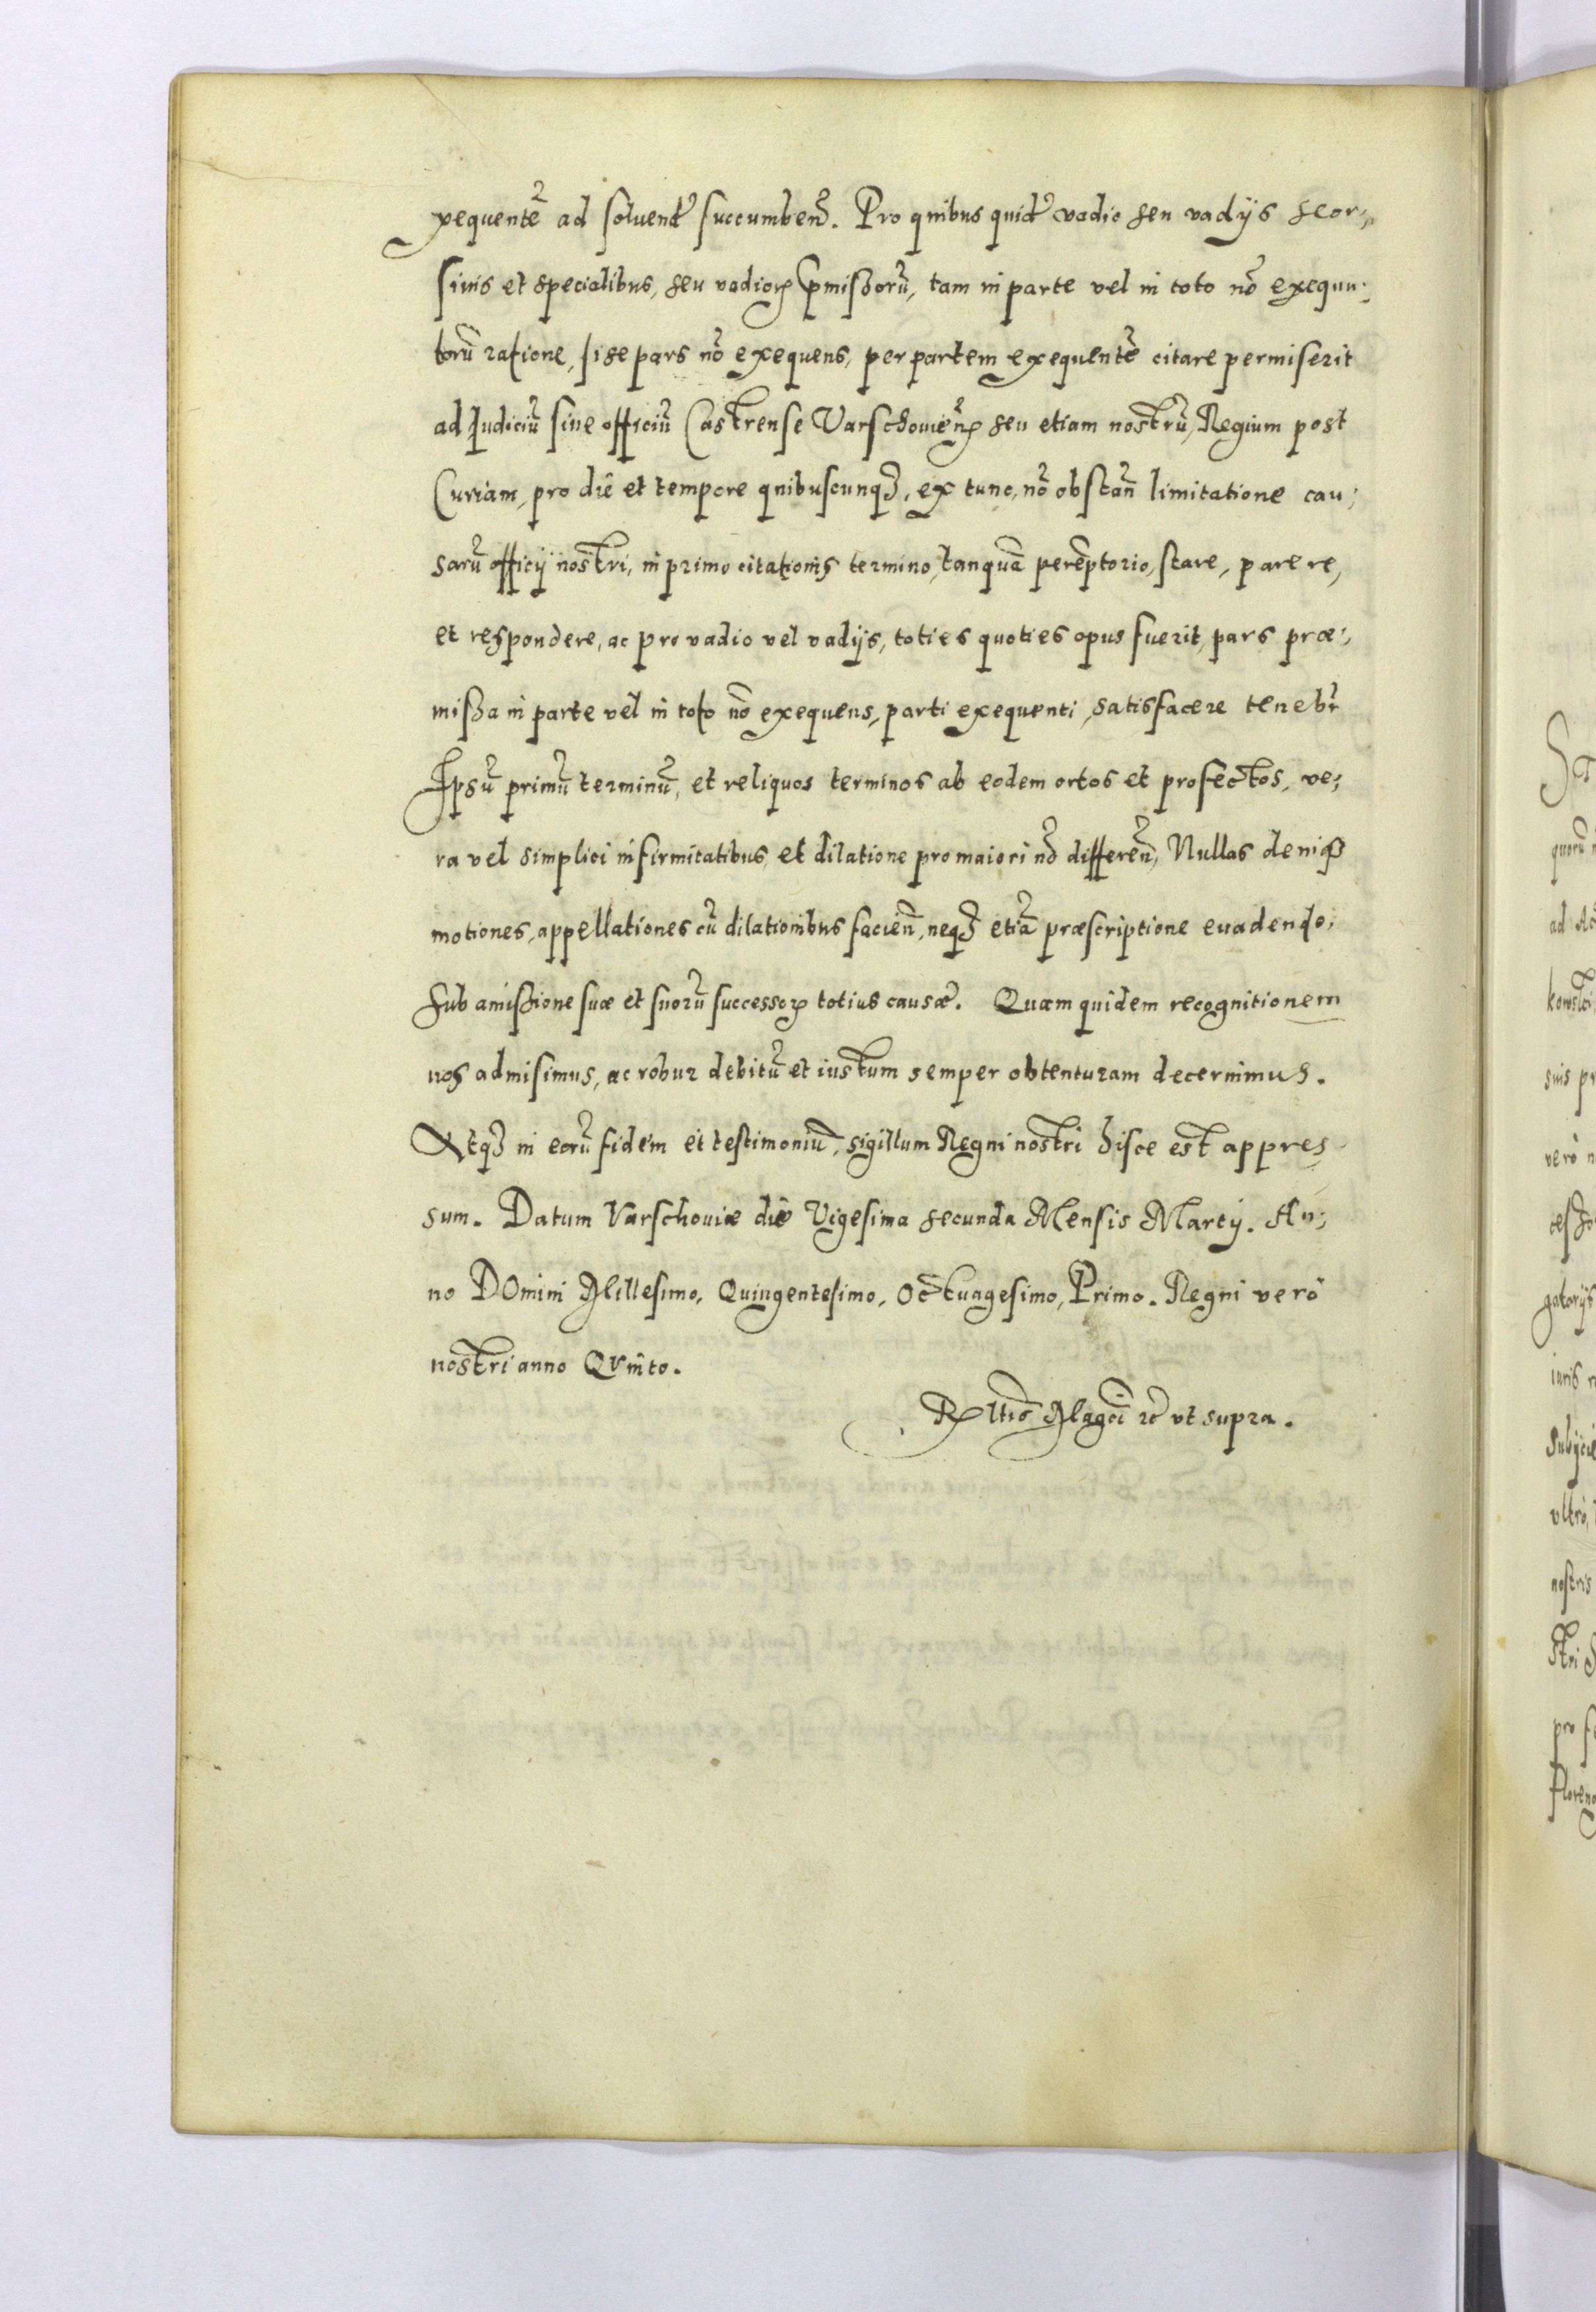 xequentē ad soluend̄ succumben̄. Pro quibus quid̄ vadio seu vadijs seor⸗
sinis et specialibus, seu vadioꝝ p̄missorū, tam in parte vel in toto nō exequu⸗
torū ratione, si se pars nō exequens, per partem exequentē citare permiserit
ad Iudiciū siue officiū Castrense Varschouień seu etiam nostrū, Regium post
Curiam, pro die et tempore quibuscunqȝ, ex tunc, nō obstan̄ limitatione cau⸗
sarū officij nostri, in primo citationis termino, tanquā perēptorio, stare, parere,
et respondere, ac pro vadio vel vadijs, toties quoties opus fuerit, pars præ⸗
missa in parte vel in toto nō exequens, parti exequenti, satisfacere tenebr̄
Ipsū primū terminū, et reliquos terminos ab eodem ortos et profectos, ve⸗
ra vel simplici infirmitatibus, et dilatione pro maiori nō differen̄, Nullas deniqȝ
motiones, appellationes cū dilationibus facien̄, neqȝ etiā præscriptione euadendo,
sub amissione suæ et suorū successoꝝ totius causæ. Quam quidem recognitionem
nos admisimus, ac robur debitū et iustum semper obtenturam decernimus.
Atqȝ in eorū fidem et testimoniū, sigillum Regni nostri hisce est appres⸗
sum. Datum Varschouiæ die Vigesima secunda Mensis Martij. An⸗
no DOmini Millesimo, Quingentesimo, Octuagesimo, Primo. Regni verò
nostri anno Quinto.
Rltio Magci ꝛc vt supra.
quorū
ad
suis
verò
gatorijs
iuris
vltrò,
nostris
pro